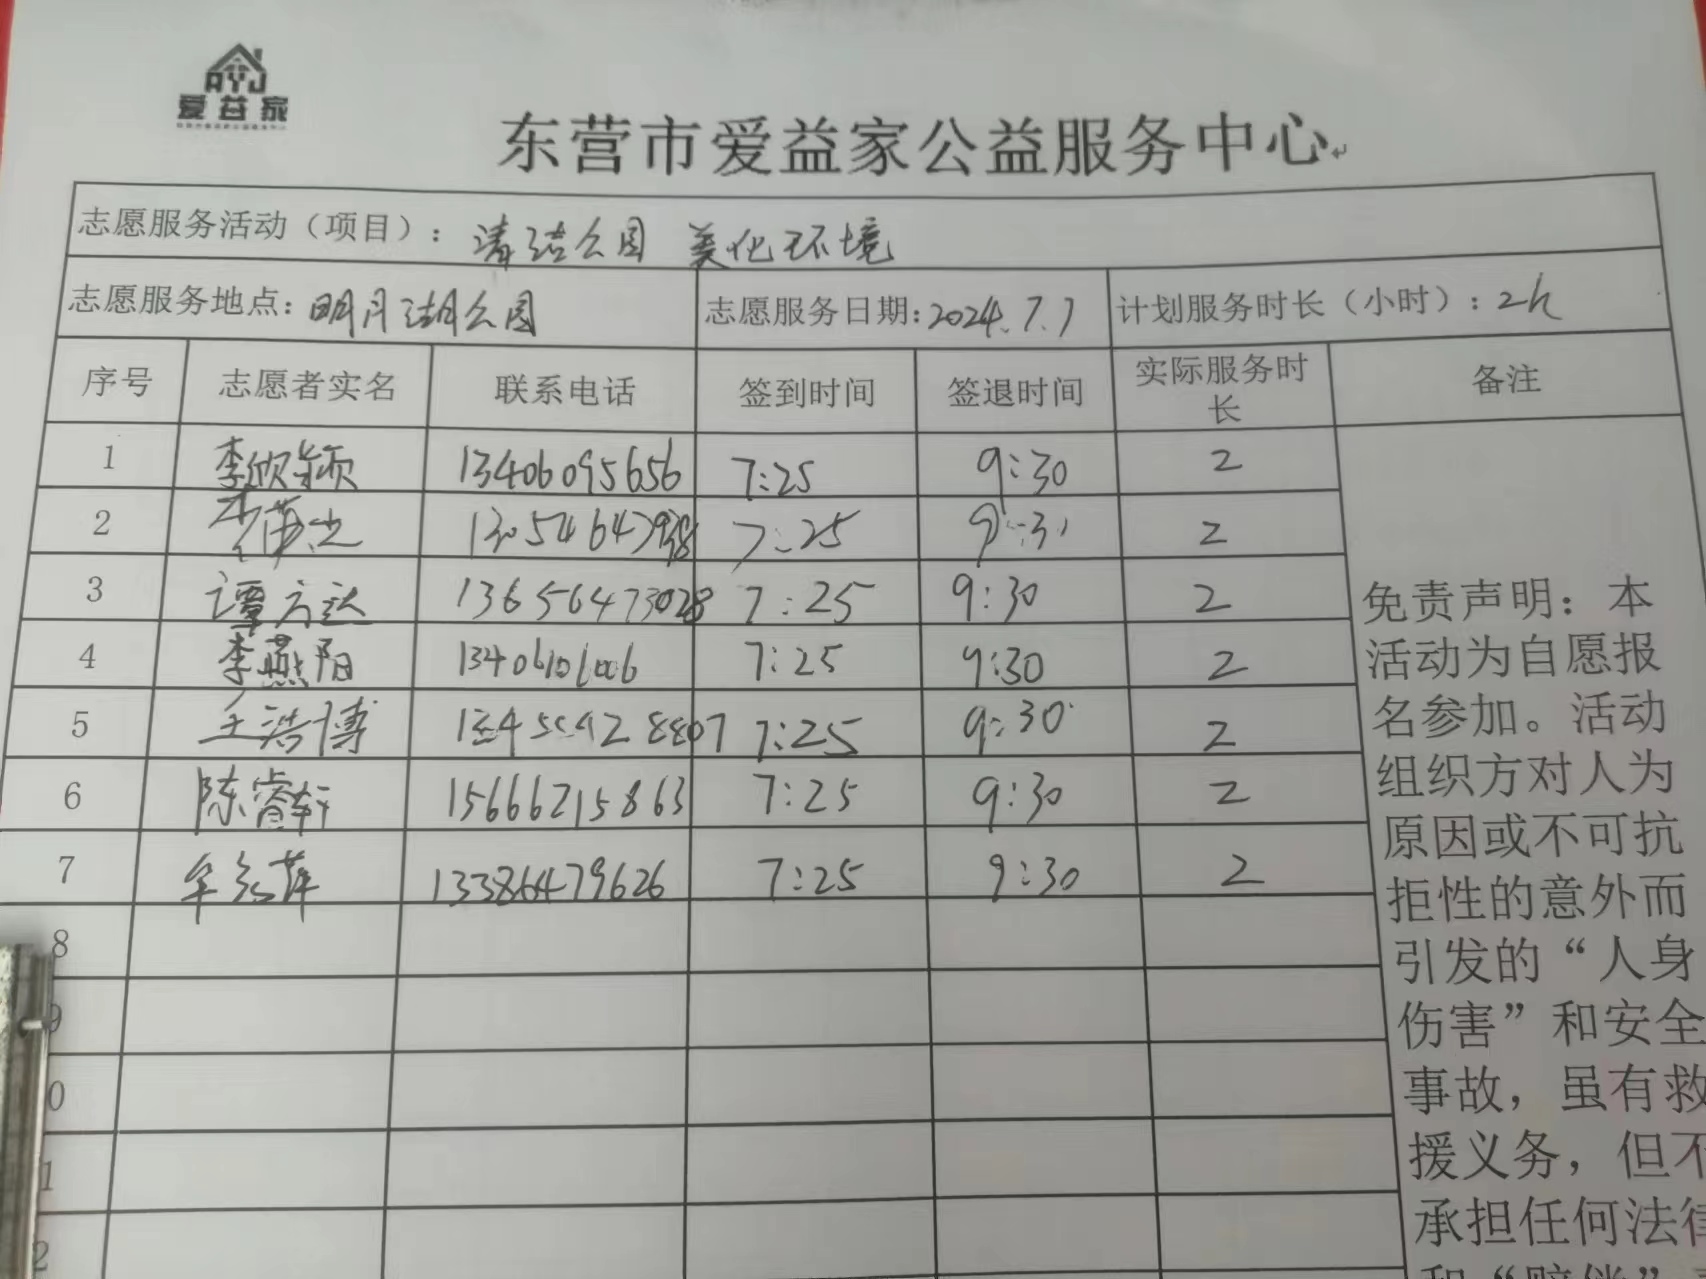 AYJ
爱益家
东营市爱益家公益服务中心
志愿服务活动（项目）：清洁公园 美化环境
志愿服务地点：明月湖公园 志愿服务日期：2024.7.7 计划服务时长（小时）：2h
序号 志愿者实名 联系电话 签到时间 签退时间 实际服务时长 备注
1 李欣颖 13406095656 7:25 9:30 2
2 7:25 9:30 2
3 谭方达 13656473028 7:25 9:30 2
4 李燕阳 13406106006 7:25 9:30 2
5 王浩博 7:25 9:30 2
6 陈睿轩 15666215863 7:25 9:30 2
7 13386479626 7:25 9:30 2
8
9
0
1
2
免责声明：本
活动为自愿报
名参加。活动
组织方对人为
原因或不可抗
拒性的意外而
引发的“人身
伤害”和安全
事故，虽有救
援义务，但不
承担任何法律
和“赔偿”